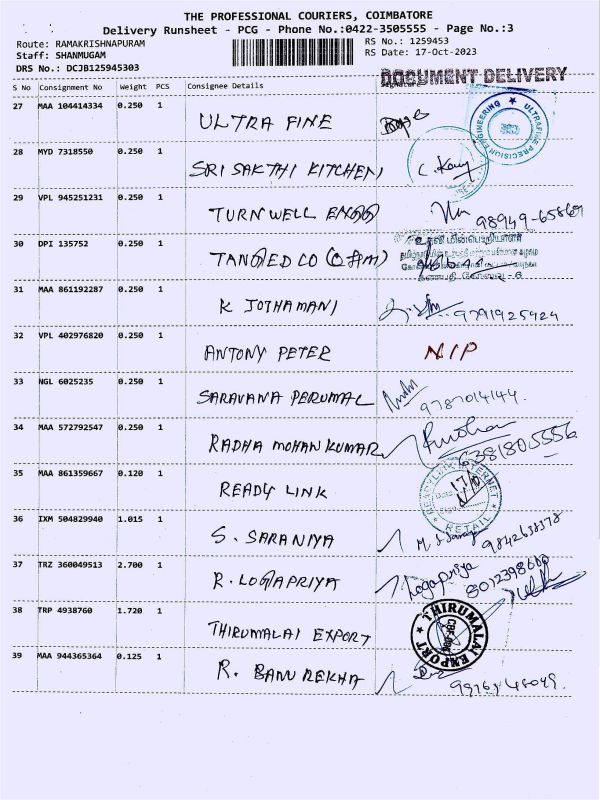 THE PROFESSIONAL COURIERS, COIMBATORE
Delivery Runsheet - PCG - Phone No.:0422-3505555 - Page No.:3
Route: RAMAKRISHNAPURAM RS No.: 1259453
Staff: SHANMUGAM RS Date: 17-Oct-2023
DRS No.: DCJB125945303 DOCUMENT DELIVERY
S No Consignment No Weight PCS Consignee Details Signature
27 MAA 104414334 0.250 1 ULTRA FINE
ULTRAFINE PRECISION ENGINEERING
28 MYD 7318550 0.250 1 SRI SAKTHI KITCHEN
29 VPL 945251231 0.250 1 TURNWELL ENGG
30 DPI 135752 0.250 1 TANGEDCO
உதவி மின்பொறியாளர்
31 MAA 861192287 0.250 1 K JOTHAMANI 9791925924
32 VPL 402976820 0.250 1 ANTONY PETER NIP
33 NGL 6025235 0.250 1 SARAVANA PERUMAL 9787014144
34 MAA 572792547 0.250 1 RADHA MOHAN KUMAR 6381805556
35 MAA 861359667 0.120 1 READY LINK
READYLINK INTERNET RETAIL
Date 17/10
36 IXM 504829940 1.015 1 S. SARANIYA
37 TRZ 360049513 2.700 1 R. LOGAPRIYA Logapriya
38 TRP 4938760 1.720 1 THIRUMALAI EXPORT
THIRUMALAI EXPORT
CBE-006
39 MAA 944365364 0.125 1 R. BANUREKHA